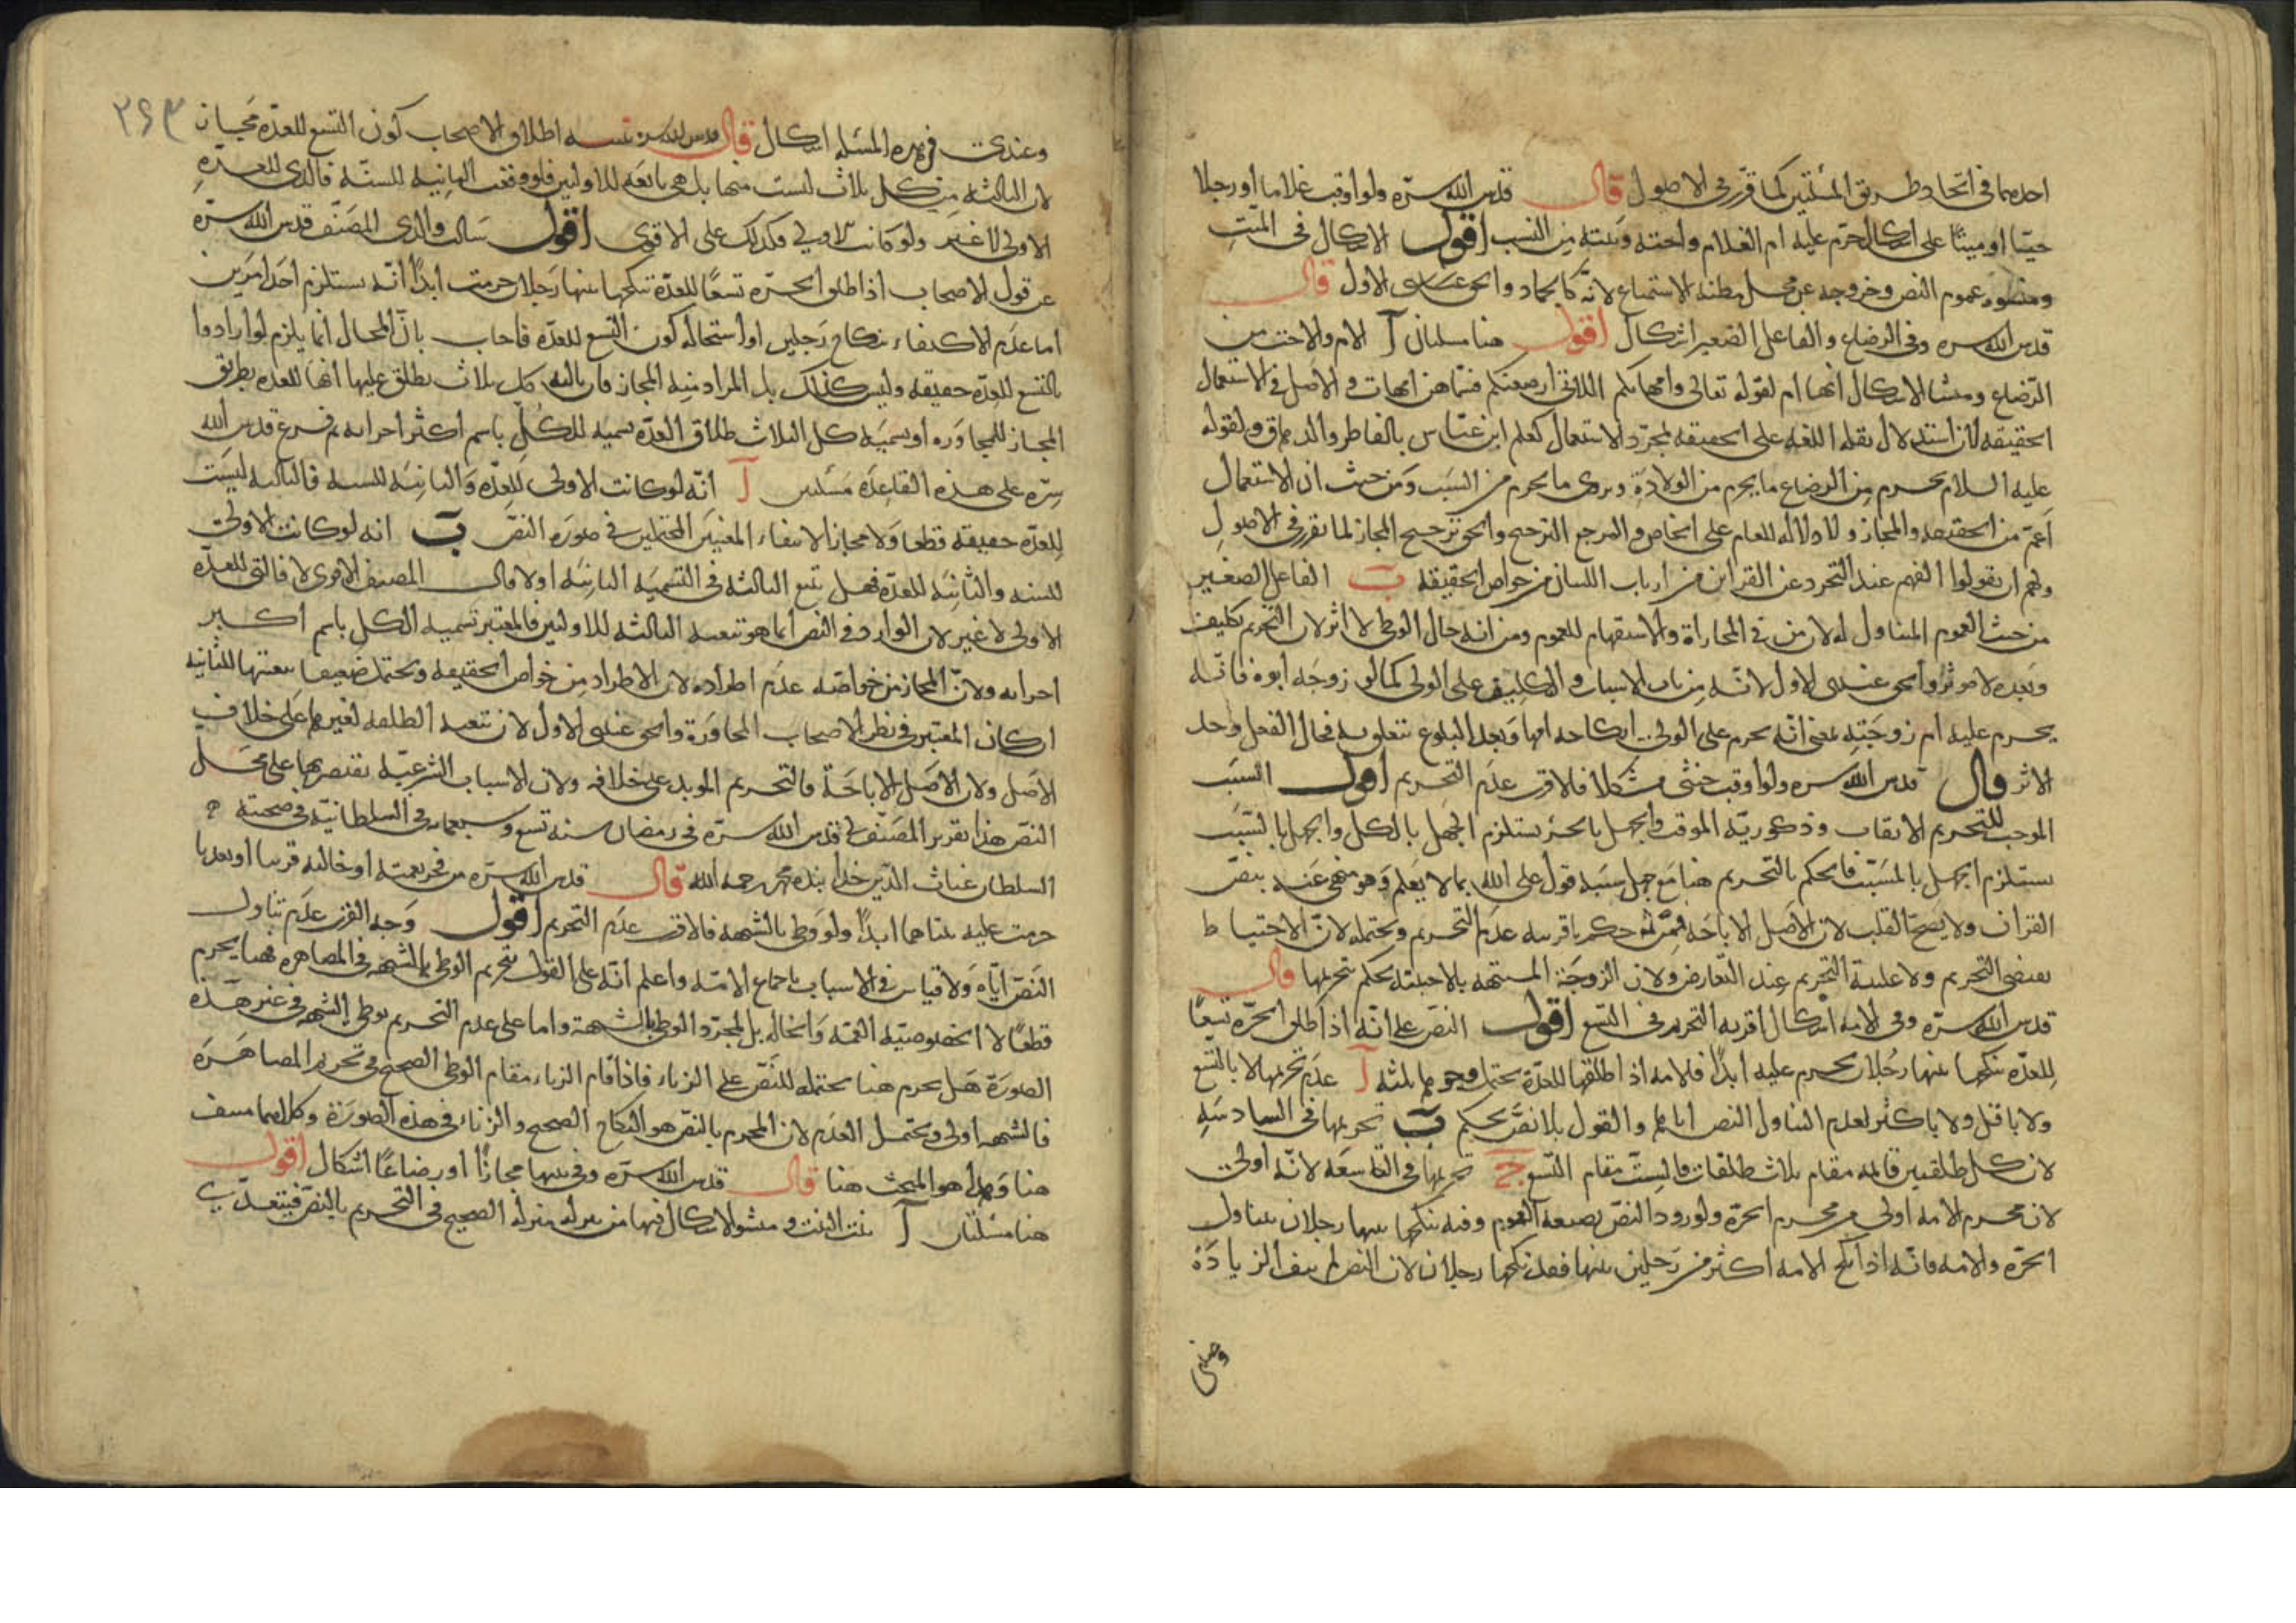 احدهما فى اتحاد طريق المسئلتين كما قرر فى الاصول قال قدس الله سره ولو اوقب غلاما او رجلا
حيّا او ميتًا على اشكال حرم عليه ام الغلام واخته وبنته من النسب اقول الاشكال فى الميّت
ومنشؤه عموم النص وخروجه عن محل مظنة الاستمتاع لانه كالجماد والحق عندى الاول قال
قدس الله سره وفى الرضاع والفاعل الصغير اشكال اقول هنا مسئلتان آ الام والاخت من
الرضاع ومنشا الاشكال انها ام لقوله تعالى وامهاتكم اللاتى ارضعنكم فسماهن امهات والاصل فى الاستعمال
الحقيقه لان استدلال نقلة اللغه على الحقيقه لمجرّد الاستعمال كعلم ابن عبّاس بالفاطر والدهاق ولقوله
عليه السلام يحرم من الرضاع ما يحرم من الولادة ويروى ما يحرم من النسب ومن حيث ان الاستعمال
اعمّ من الحقيقه والمجاز ولا دلاله للعام على الخاص والمرجع الترجيح والحق ترجيح المجاز لما تقرر فى الاصول
ولهم ان يقولوا الفهم عند التجرد عن القراين من ارباب اللسان من خواص الحقيقه ب الفاعل الصغير
من حيث العموم المتناول له لان من فى المجازاة والاستفهام للعموم ومن انه حال الوطى لا اثر لان التحريم تكليف
وبعده لا مؤثر والحق عندى الاول لانه من باب الاسباب والتكليف على الولى كما لو زوجه ابوه فانه
يحرم عليه ام زوجته بمعنى انه يحرم على الولى انكاحه امها وبعد البلوغ يتعلق به فحال الفعل وجد
الاثر قال قدس الله سره ولو اوقب خنثى مشكلا فالاقرب عدم التحريم اقول السبب
الموجب للتحريم الايقاب وذكورية الموقب والجهل بالجزء يستلزم الجهل بالكل والجهل بالسبب
يستلزم الجهل بالمسبّب فالحكم بالتحريم هنا مع جهل سببه قول على الله بما لا يعلم وهو منهى عنه بنصّ
القران ولا يصح القلب لان الاصل الاباحة فمن ثم حكم باقربيه عدم التحريم ويحتمله لان الاحتياط
يقتضى التحريم ولا غلبة التحريم عند التعارض ولان الزوجة المشتبهه بالاجنبيّه يحكم بتحريمها قال
قدس الله سره وفى الامه اشكال اقربه التحريم فى التسع اقول النص على انه اذا طلق الحرّة تسعًا
للعدّه ينكحها بينها رجلان يحرم عليه ابدًا فالامه اذا طلقها للعدّة يحتمل وجوها ثلثه آ عدم تحريمها لا بالتسع
ولا باقل ولا باكثر لعدم التناول النص اياها والقول بلا نصّ تحكم ب تحريمها فى السادسه
لان كل طلقتين قائمه مقام ثلاث طلقات فالست مقام التسع ج تحريمها فى التاسعه لانه اولى
لان تحريم الامه اولى من تحريم الحرّة ولورود النصّ بصيغه العموم وفيه ينكحها بينها رجلان يتناول
الحرّة والامه فانه اذا نكح الامه اكثر من رجلين بينها فقد نكحها رجلان لان النص لم ينف الزيادة
وعندى
٢٦٣
وعندى فى هذه المسئله اشكال قال قدس الله سره تنبيه اطلاق الاصحاب كون التسع للعدّه مجاز
لان الثالثه من كل ثلاث ليست منها بل هى تابعه للاوليين فلو وقعت الثانيه للسنّه فالذى للعدّه
الاولى لا غير ولو كانت الاولى فكذلك على الاقوى اقول سالت والدى المصنّف قدس الله سره
عن قول الاصحاب اذا طلق الحرّه تسعًا للعدّة تنكحها بينها رجلان حرمت ابدًا انّه يستلزم احد امرين
اما عدم الاكتفاء بنكاح رجلين او استحالة كون التسع للعدّه فاجاب بانّ المحال انما يلزم لو ارادوا
بالتسع للعدّه حقيقه وليس كذلك بل المراد منه المجاز فان ثالثه كل ثلاث يطلق عليها انها للعدّه بطريق
المجاز للمجاوره او تسميه كل الثلاث طلاق العدّه تسميه للكل باسم اكثر اجزائه ثم فرع قدس الله
سره على هذه القاعدة مسئلتين آ انّه لو كانت الاولى للعدّه والثانيه للسنه فالثالثه ليست
للعدّه حقيقه قطعا ولا مجازا لانتفاء المعنيين المحتملين فى صورة النصّ ب انه لو كانت الاولى
للسنه والثانيه للعدّه فهل تتبع الثالثه فى التسميه الثانيه اولا قال المصنف الاقوى لا فالتى للعدّه
الاولى لا غير لان الوارد فى النص انما هو تبعيه الثالثه للاوليين فالمعتبر تسميه الكل باسم اكبر
اجزائه ولانّ المجاز من خواصّه عدم اطراده لان الاطراد من خواص الحقيقه ويحتمل ضعيفا تبعيتها للثانيه
ان كان المعتبر فى نظر الاصحاب المجاورة والحق عندى الاول لان تبعيه الطلقه لغيرها على خلاف
الاصل ولان الاصل الاباحة فالتحريم الموبد على خلافه ولان الاسباب الشرعيّه يقتصر بها على محل
النص هذا تقرير المصنّف لى قدس الله سره فى رمضان سنه تسع وسبعمائه فى السلطانيّه فى صحبة
السلطان غياث الدين خدا بنده محمد رحمه الله قال قدس الله سره من فجر بعمته او خالته قربا او بعدا
حرمت عليه بنتاهما ابدًا ولو وطى بالشبهه فالاقرب عدم التحريم اقول وجه القرب عدم تناول
النصّ ايّاه ولا قياس فى الاسباب باجماع الامّه واعلم انّه على القول بتحريم الوطى بالشبهه فى المصاهرة هنا يحرم
قطعًا لا لخصوصيّة العمّه والخالة بل لمجرّد الوطى بالشبهة واما على عدم التحريم بوطى الشبهه فى غير هذه
الصورة هل يحرم هنا يحتمله للنصّ على الزناء فاذا قام الزناء مقام الوطى الصحيح فى تحريم المصاهرة
فالشبهه اولى ويحتمل العدم لان المحرم بالنص هو النكاح الصحيح والزناء فى هذه الصورة وكلاهما منتف
هنا وهذا هو المبحث هنا قال قدس الله سره وفى بنتها مجازًا او رضاعًا اشكال اقول
هنا مسئلتان آ بنت البنت ومنشو الاشكال فيها من تنزله منزلة الصحيح فى التحريم بالنصّ فيتعدّى